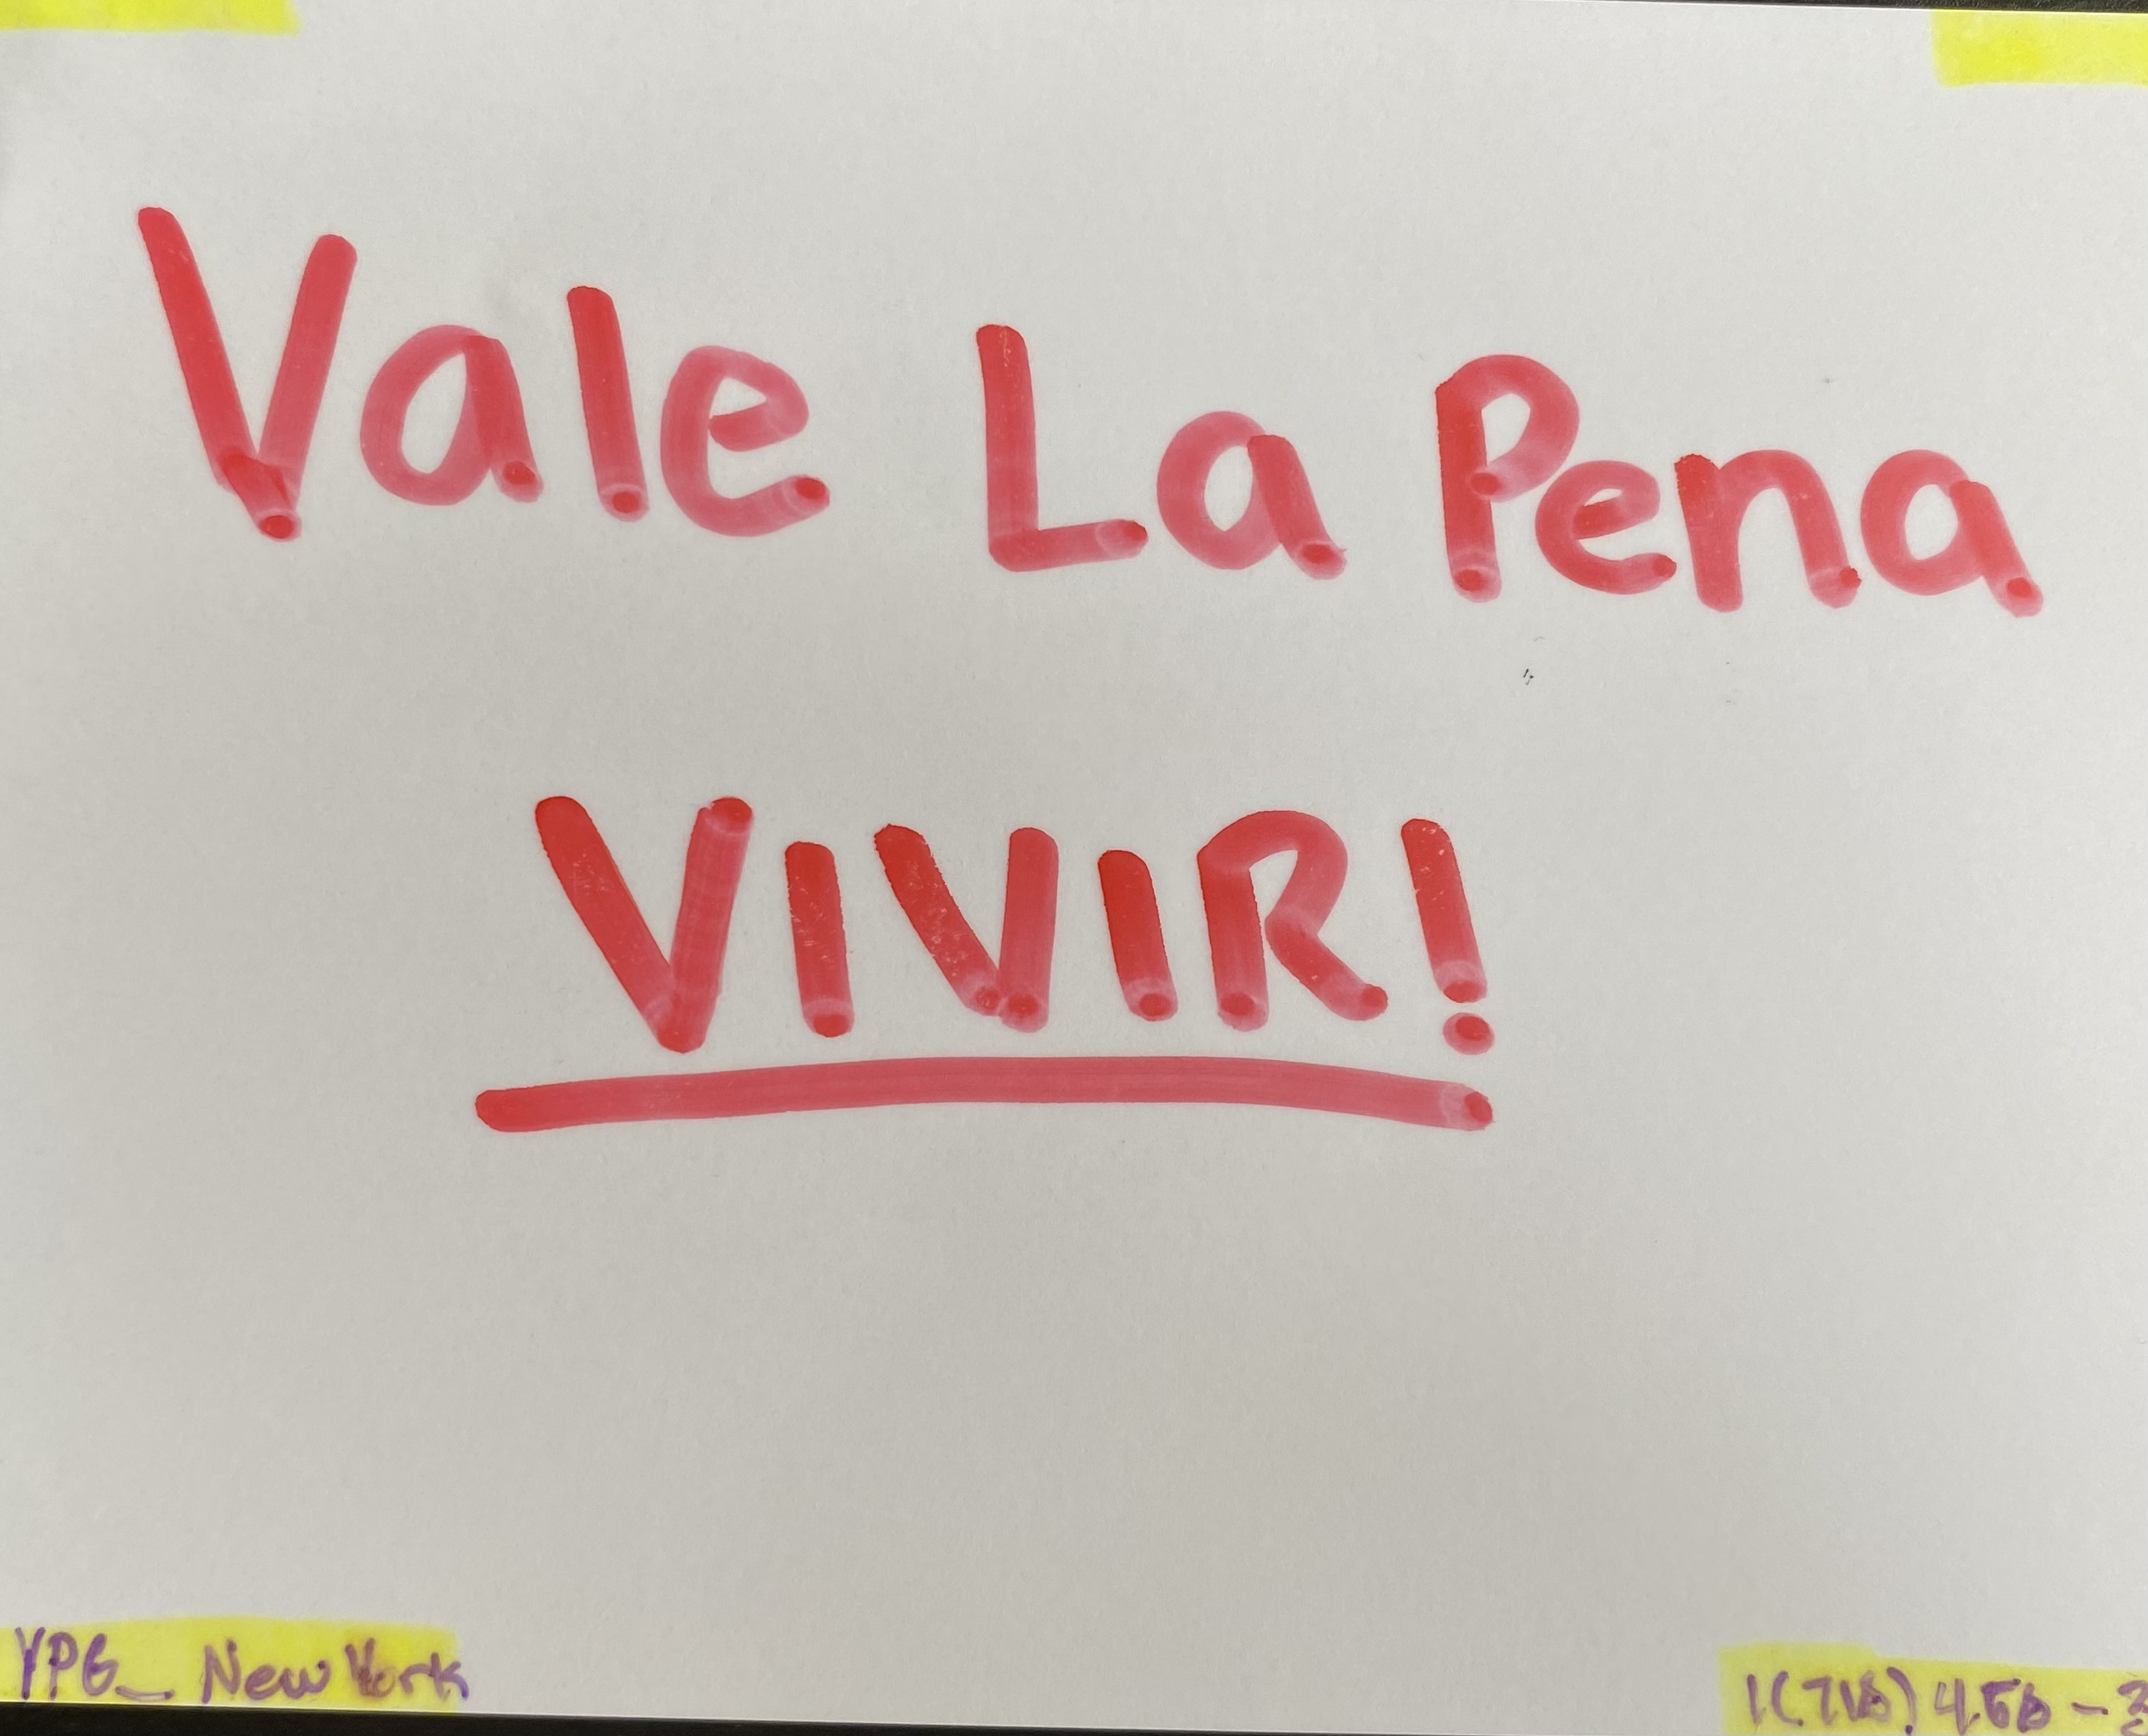 Vale La Pena
VIVIR!
YPG_ New York
1(718)